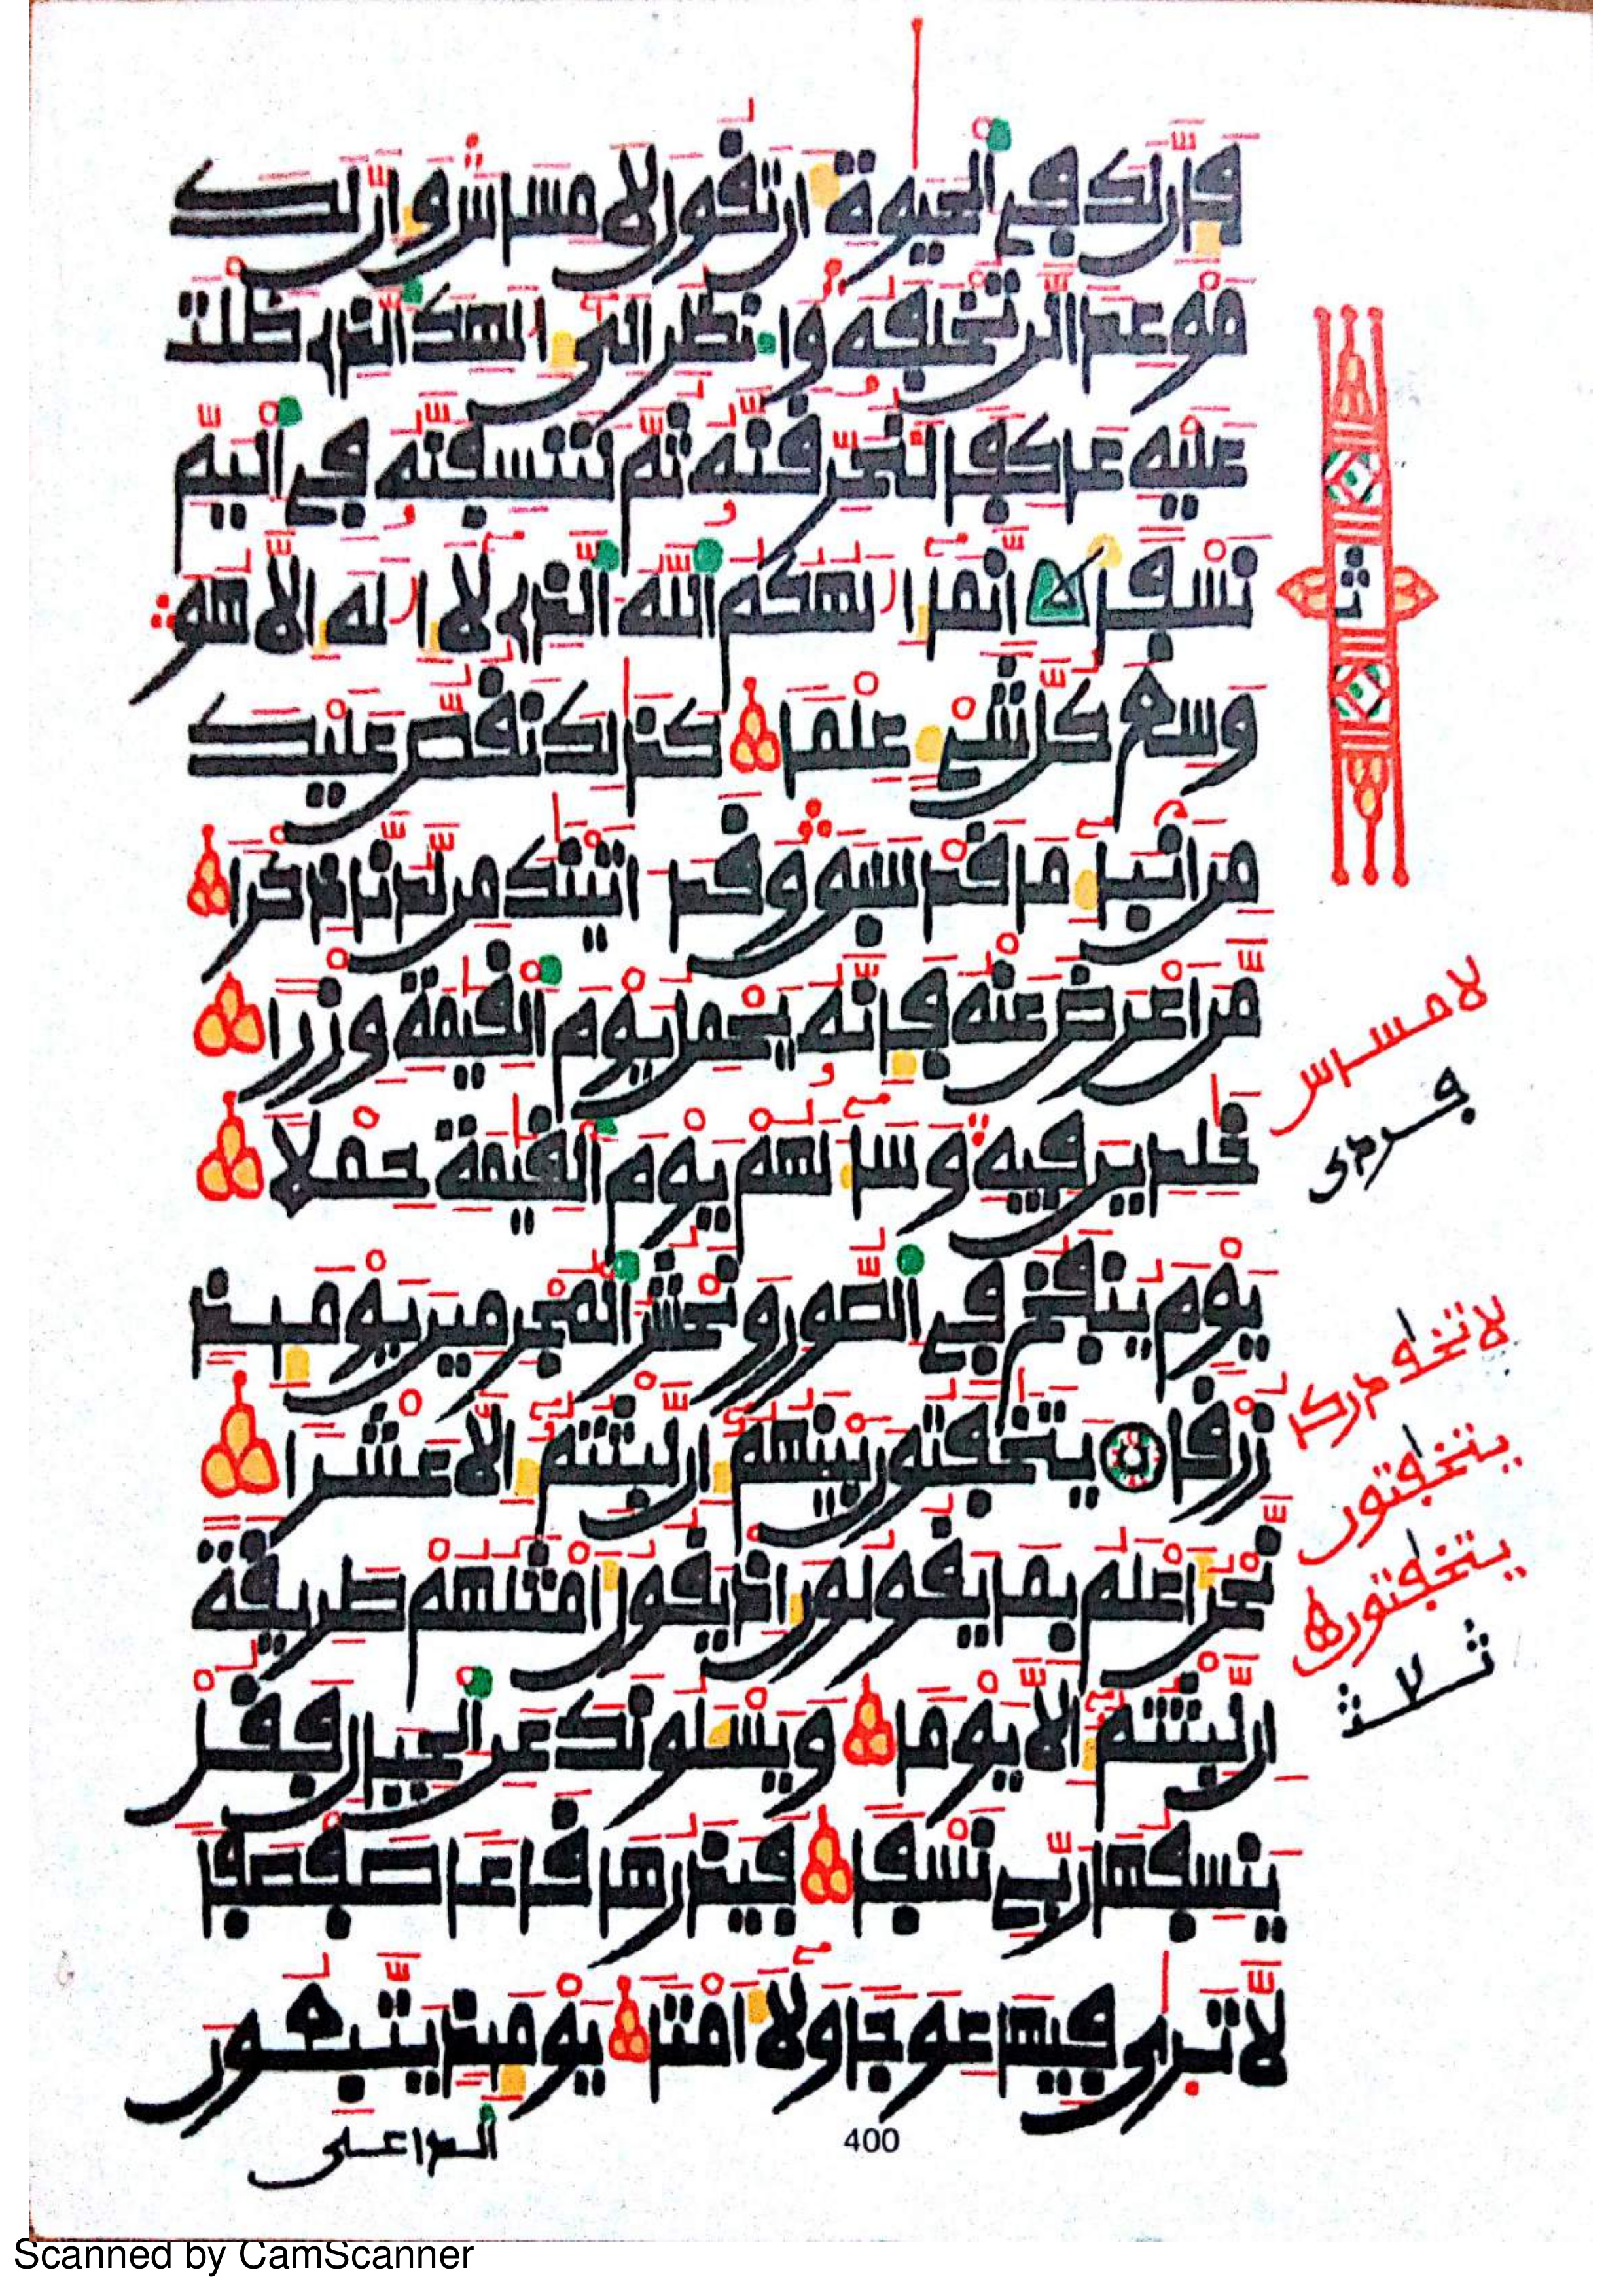 فإن لك في الحيوة أن تقول لا مساس وإن لك
موعدا لن تخلفه وانظر إلى إلهك الذي ظلت
عليه عاكفا لنحرقنه ثم لننسفنه في اليم
نسفا إنما إلهكم الله الذي لا إله إلا هو
وسع كل شيء علما كذلك نقص عليك
من أنباء ما قد سبق وقد اتينك من لدنا ذكرا
من أعرض عنه فإنه يحمل يوم القيمة وزرا
خلدين فيه وساء لهم يوم القيمة حملا
يوم ينفخ في الصور ونحشر المجرمين يومئذ
زرقا يتخفتون بينهم إن لبثتم إلا عشرا
نحن أعلم بما يقولون إذ يقول أمثلهم طريقة
إن لبثتم إلا يوما ويسئلونك عن الجبال فقل
ينسفها ربي نسفا فيذرها قاعا صفصفا
لا ترى فيها عوجا ولا أمتا يومئذ يتبعون
الداعي
ث
لا مساس
فردى
لا تخف دركا
يتخفتون
400
Scanned by CamScanner